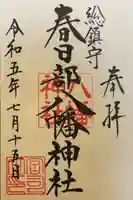 奉拝
総鎮守
春日部八幡神社
令和五年七月十五日